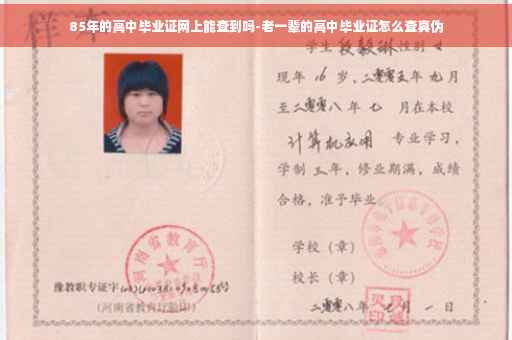 85年的高中毕业证网上能查到吗-老一辈的高中毕业证怎么查真伪
样本
学生 段毅琳 性别 女
现年 16 岁，二零零五年 九月
至二零零八年 七 月在本校
计算机应用 专业学习，
学制 三 年，修业期满，成绩
合格，准予毕业
学校（章）
校长（章）
河南省教育厅
豫教职专证字
（河南省教育厅验印）
二零零八年 七 月 一 日